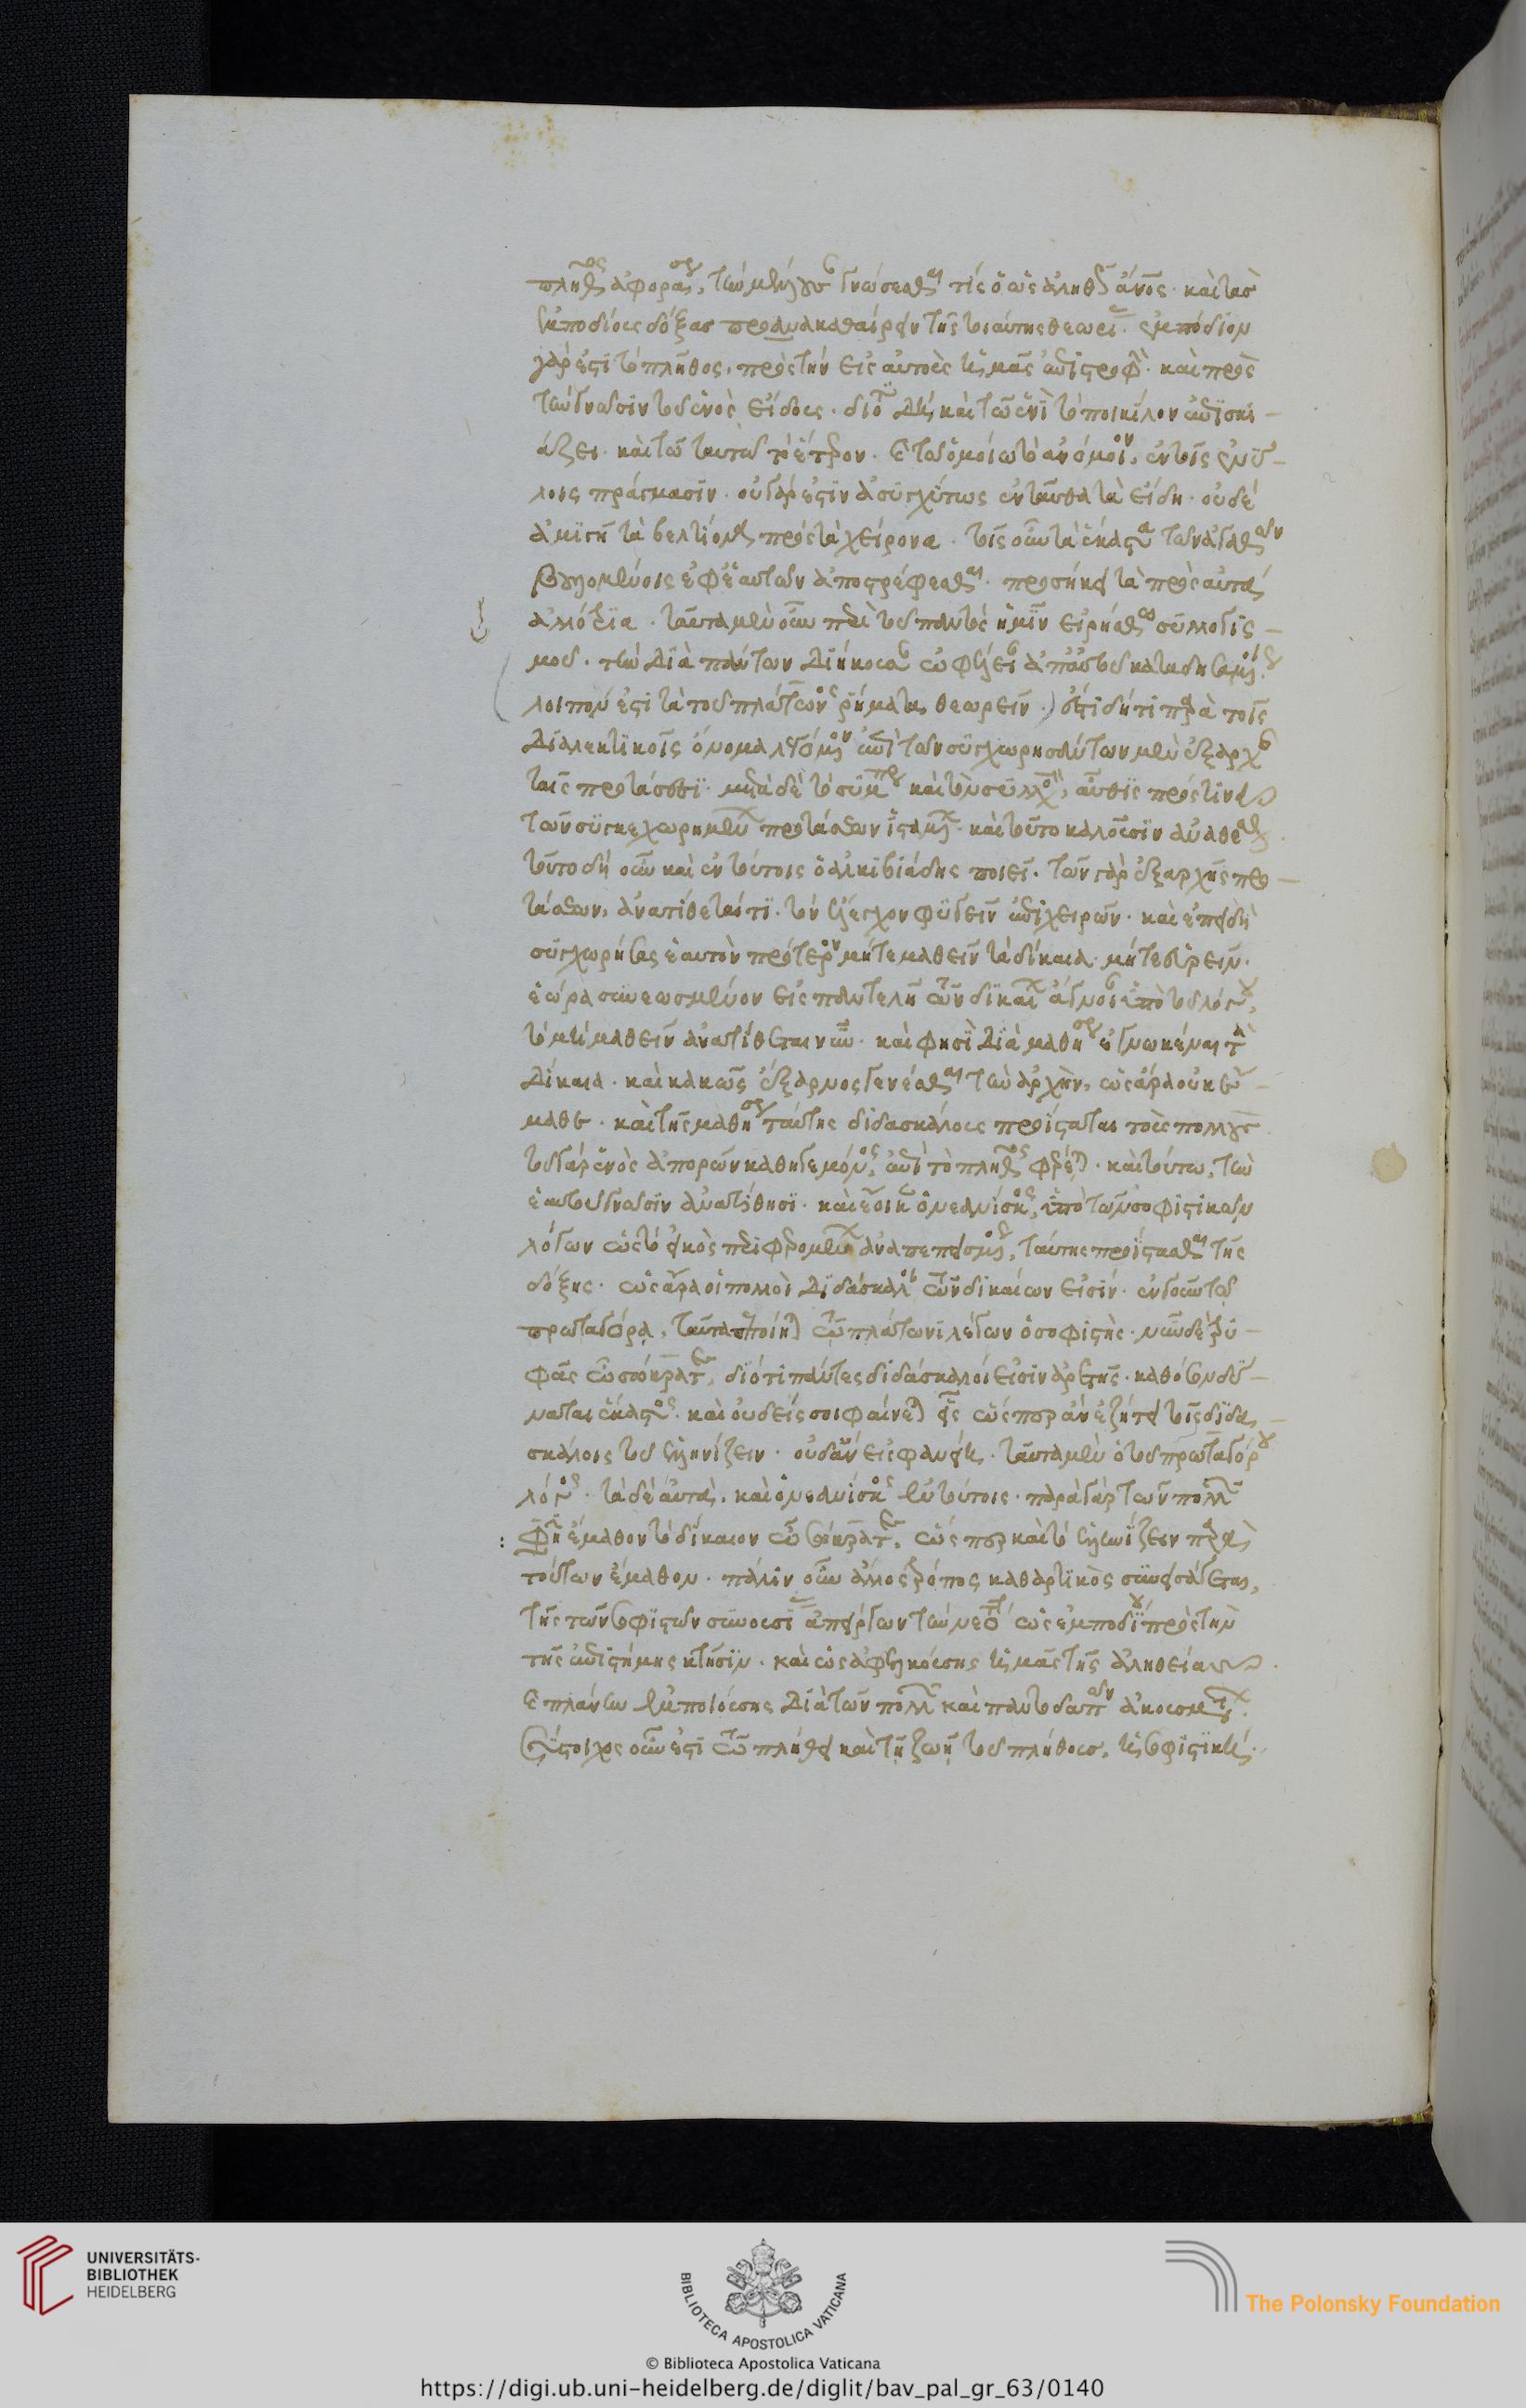 πλῆθος ἀφορᾶν, τὸν μέλλοντα γνώσεσθαι τίς ὁ ὡς ἀληθῶς ἄνος. καὶ τὰς
ἐμποδίους δόξας προανακαθαίρειν τῆς τοιαύτης θεωρίας. ἐμπόδιον
γάρ ἐστι τὸ πλῆθος, πρὸς τὴν εἰς αὐτοὺς ἡμᾶς ἐπιστροφὴν. καὶ πρὸς
τὴν γνῶσιν τοῦ ἑνὸς εἴδους. διότι δὴ καὶ τῶ ἑνὶ τὸ ποικίλον ἐπισκι-
άζει. καὶ τῶ ταυτῶ τὸ ἕτερον. καὶ τῶ ὁμοίω τὸ ἀνόμοιον, ἐν τοῖς ἐνύ-
λοις πράγμασιν. οὐ γάρ ἐστιν ἀσυγχύτως ἐνταῦθα τὰ εἴδη. οὐδὲ
ἀμιγῆ τὰ βελτίονα πρὸς τὰ χείρονα. τοῖς οὖν τὰ ἕκαστα τῶν ἀγαθῶν
βουλομένοις ἐφ' ἑαυτῶν ἀποτρέφεσθαι. προσήκει τὰ πρὸς αὐτὰ
ἀλλότρια. ταῦτα μὲν οὖν περὶ τοῦ παντὸς ἡμῖν εἰρήσθω συλλογισ-
μοῦ. τὴν διὰ πάντων διήκουσαν ὠφέλειαν ἀπ' αὐτοῦ καταδησαμένου.
λοιπὸν ἐστὶ τὰ τοῦ πλάτωνος ῥήματα θεωρεῖν. ἔστι δή τι παρὰ τοῖς
διαλεκτικοῖς ὄνομα λεγόμενον ἐπὶ τῶν συγχωρησάντων μὲν ἐξ ἀρχῆς
ταῖς προτάσεσι. μετὰ δὲ τὸ συμπέρασμα καὶ τὸν συλλογισμὸν, αὖθις πρός τινας
τῶν συγκεχωρημένων προτάσεων ἱσταμένων. καὶ τοῦτο καλοῦσιν ἀναθέσθαι.
τοῦτο δὴ οὖν καὶ ἐν τούτοις ὁ ἀλκιβιάδης ποιεῖ. τῶν γὰρ ἐξ ἀρχῆς προ-
τάσεων, ἀνατίθεταί τι. τὸν ἔλεγχον φυγεῖν ἐπιχειρῶν. καὶ ἐπειδὴ
συγχωρήσας ἑαυτὸν πρότερον μήτε μαθεῖν τὰ δίκαια μήτε εὑρεῖν.
ἑώρα συνεωσμένον εἰς παντελῆ τῶν δικαίων ἄγνοιαν ὑπὸ τοῦ λόγου,
τὸ μὴ μαθεῖν ἀνατίθεται νῦν. καὶ φησὶ διὰ μαθήσεως ἐγνωκέναι τὰ
δίκαια. καὶ κακῶς ἔξαρνος γενέσθαι τὴν ἀρχὴν, ὡς ἄρα οὐκ ἔ-
μαθε. καὶ τῆς μαθήσεως ταύτης διδασκάλους προίσταται τοὺς πολλούς
τοῦ γὰρ ἑνὸς ἀπορῶν καθηγεμόνος, ἐπὶ τὸ πλῆθος φέρεται. καὶ τούτω, τὴν
ἑαυτοῦ γνῶσιν ἀνατίθησι. καὶ ἔοικεν ὁ νεανίσκος, ὑπὸ τῶν σοφιστικῶν
λόγων ὡς τὸ εἰκὸς περιφερομένων ἀναπεπεισμένος, ταύτης προίστασθαι τῆς
δόξης. ὡς ἄρα οἱ πολλοὶ διδάσκαλοι τῶν δικαίων εἰσίν. ἐν γοῦν τῶ
πρωταγόρα, ταῦτα πεποίηται τῶ πλάτωνι λέγων ὁ σοφιστής. νῦν δὲ τρυ-
φᾶς ὦ σώκρατες, διότι πάντες διδάσκαλοί εἰσιν ἀρετῆς. καθόσον δύ-
ναται ἕκαστος. καὶ οὐδείς σοι φαίνεται εἶς ὥσπερ ἂν εἰ ζητεῖ τοῖς διδα-
σκάλοις τοῦ ἑλληνίζειν. οὐδ' ἂν εἷς φανείη. ταῦτα μὲν ὁ τοῦ πρωταγόρου
λόγος. τὰ δὲ αὐτὰ, καὶ ὁ νεανίσκος ἐν τούτοις. παρὰ γὰρ τῶν πολλῶν
φησὶν ἔμαθον τὸ δίκαιον ὦ σώκρατες, ὥσπερ καὶ τὸ ἑλληνίζειν παρὰ
τούτων ἔμαθον. πάλιν οὖν ἄλλος τρόπος καθαρτικὸς συνεισάγεται,
τῆς τῶν σοφιστῶν συνουσίας ἀπείργων τὸν νέον ὡς ἐμποδίου πρὸς τὴν
τῆς ἐπιστήμης κτῆσιν. καὶ ὡς ἀφελκούσης ἡμᾶς τῆς ἀληθείας.
καὶ πλάνην ἐμποιούσης διὰ τῶν πολλῶν καὶ παντοδαπῶν ἀκουσμάτων.
σύστοιχος οὖν ἐστὶ τῶ πλήθει καὶ τῇ ζωῇ τοῦ πλήθους, ἡ σοφιστική.
UNIVERSITÄTS-
BIBLIOTHEK
HEIDELBERG
BIBLIOTECA APOSTOLICA VATICANA
The Polonsky Foundation
© Biblioteca Apostolica Vaticana
https://digi.ub.uni-heidelberg.de/diglit/bav_pal_gr_63/0140